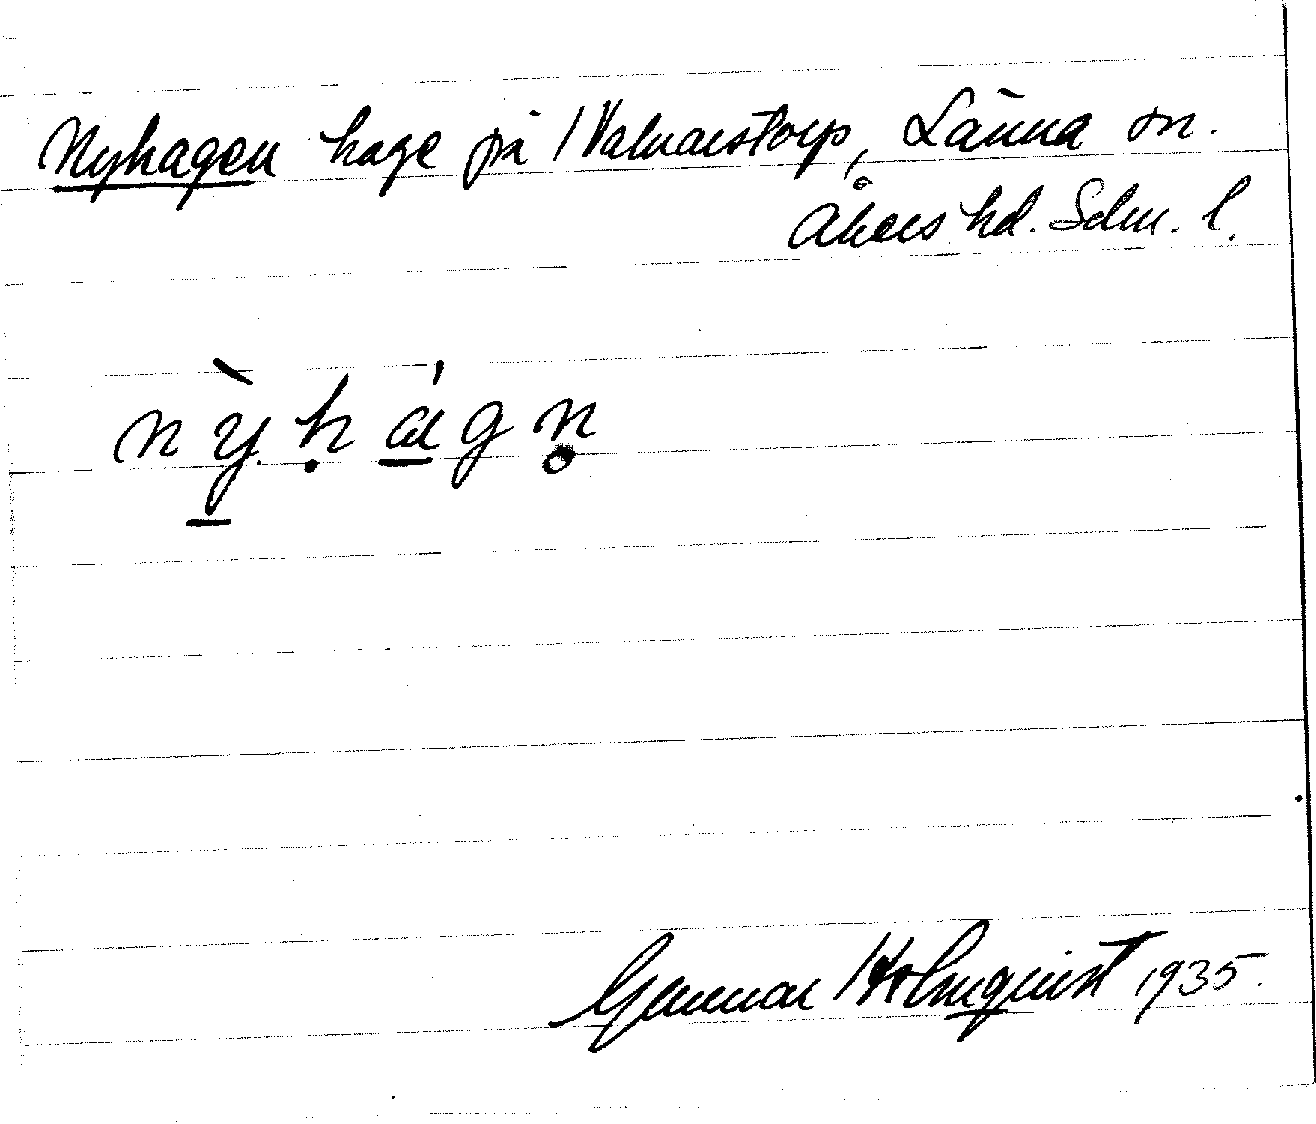 Nyhagen hage på Valnarstorp, Länna sn.
Åkers hd. Sdm. l.
nỳhágn̥
Gunnar Holmquist 1935.